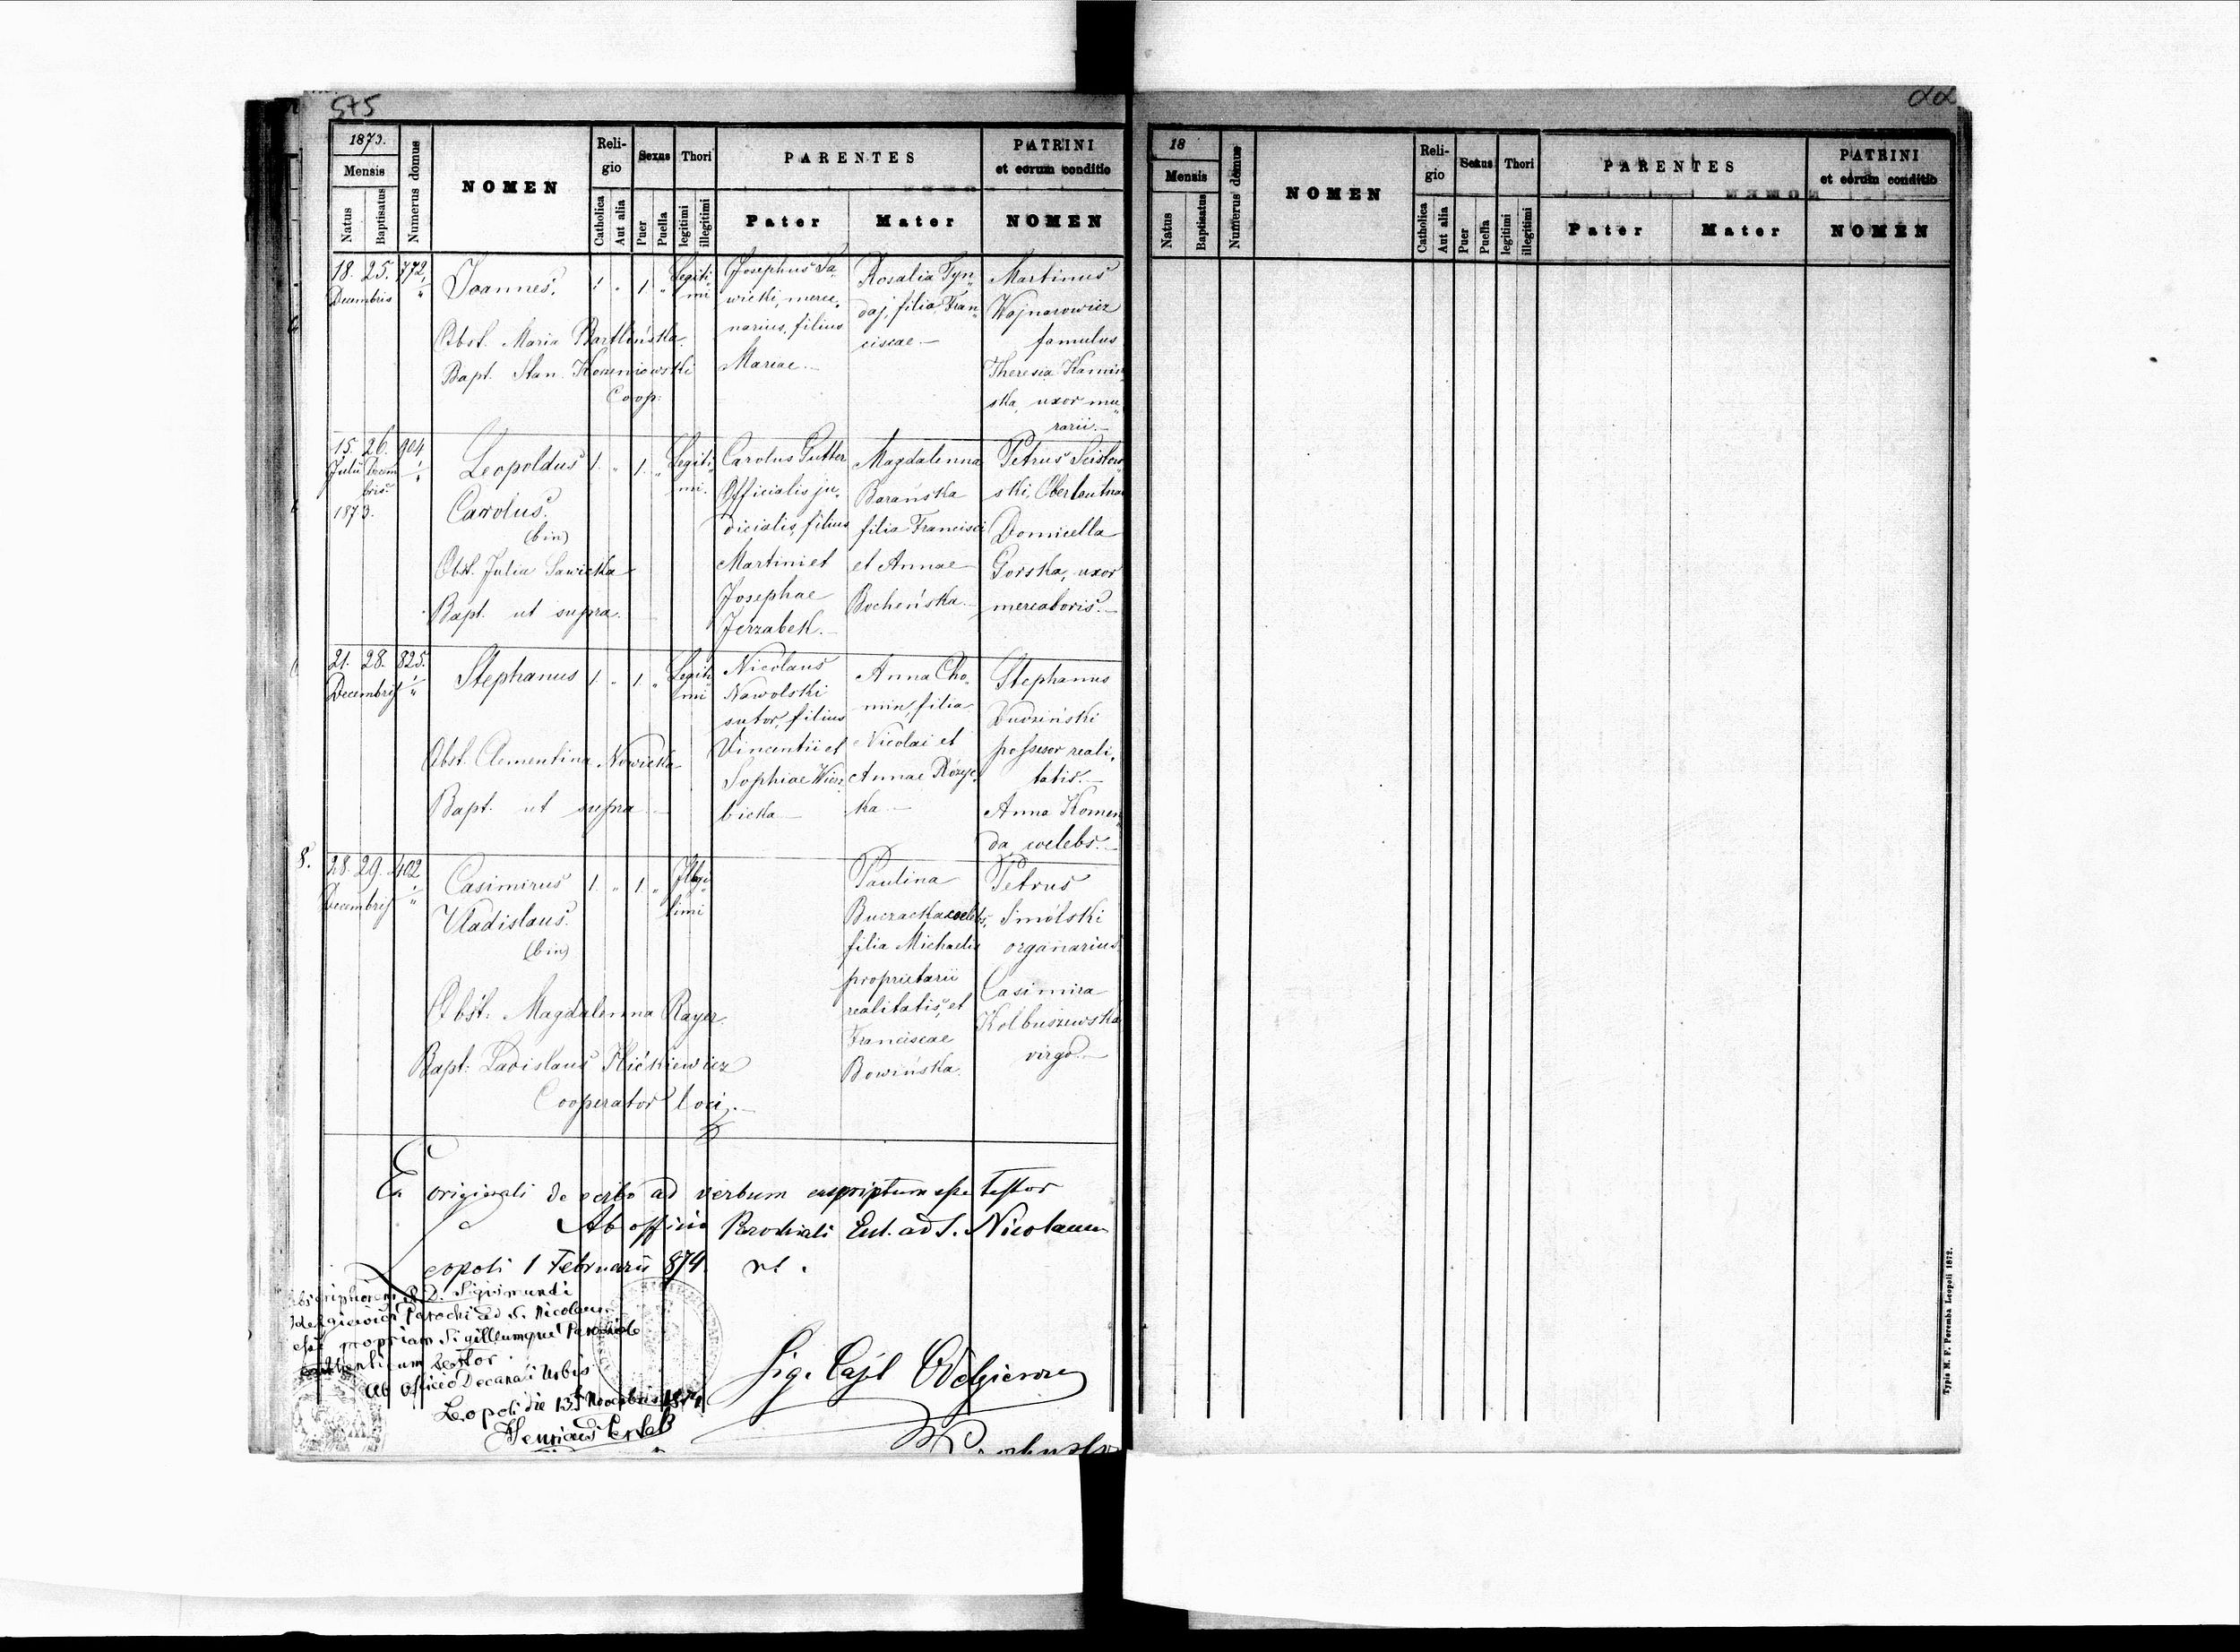 575
1873.
Mensis
Natus
Baptisatus
Numerus domus
NOMEN
Reli-
gio
Catholica
Aut alia
Sexus
Puer
Puella
Thori
legitimi
illegitimi
PARENTES
Pater
Mater
PATRINI
et eorum conditio
NOMEN
18. 25. 772.
Decembris
Joannes.
1 " 1. "
Legiti„
mi
Obst. Maria Bartlińska.
Bapt. Stan. Korzeniowski
Coop:
Josephus Sa„
wicki, merce„
narius, filius
Mariae.
Rosalia Tyn„
daj, filia Fran„
ciscae.
Martinus
Wojnarowicz
famulus
Theresia Kamiń
ska, uxor mu„
rarii.
15. 26. 904
Julii Decem
bris.
1873.
Leopoldus
Carolus.
(bin)
1. " 1. "
Legiti„
mi.
Obst. Julia Sawicka
Bapt. ut supra.
Carolus Gutter
Officialis ju„
dicialis, filius
Martini et
Josephae
Jerzabek.
Magdalenna
Barańska
filia Francisci
et Annae
Bocheńska.
Petrus
ski,
Domicella
Gorska, uxor
mercatoris.
21. 28. 825.
Decembris
Stephanus
1. " 1. "
Legiti
mi
Obst. Clementina Nowicka
Bapt. ut supra
Nicolaus
Nawolski
sutor, filius
Vincentii et
Sophiae Wierz
bicka
Anna Cho„
min, filia
Nicolai et
Annae Różyc„
ka
Stephanus
Dudziński
possessor reali„
tatis.
Anna Komen„
da, coelebs.
8.
28. 29. 402
Decembris
Casimirus
Vladislaus.
(bin)
1. " 1. "
Illegi„
timi
Obst: Magdalenna Rayer.
Bapt: Ladislaus Hićkiewicz
Cooperator loci.
Paulina
Buczacka coelebs,
filia Michaelis
proprietarii
realitatis, et
Franciscae
Bowińska.
Petrus
Smólski
organarius.
Casimira
Kolbuszewska
virgo.
Ex originali de verbo ad verbum esse testor
Ab officio Parochiali Ad S. Nicolaum
Leopoli 1 Februarii 874.
R. D. Sigismundi
Parochi ad S. Nicolaum
esse propriam Sigillumque Parochiale
authenticum testor
Ab Officio Decanali Urbis
Leopoli die 13 1874
Sig. Odelgiewicz
18
Mensis
Natus
Baptisatus
Numerus domus
NOMEN
Reli-
gio
Catholica
Aut alia
Sexus
Puer
Puella
Thori
legitimi
illegitimi
PARENTES
Pater
Mater
PATRINI
et eorum conditio
NOMEN
Typis M. F. Poremba Leopoli 1872.